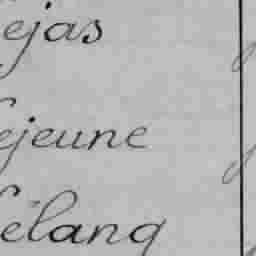 ejas
ejeune
élang